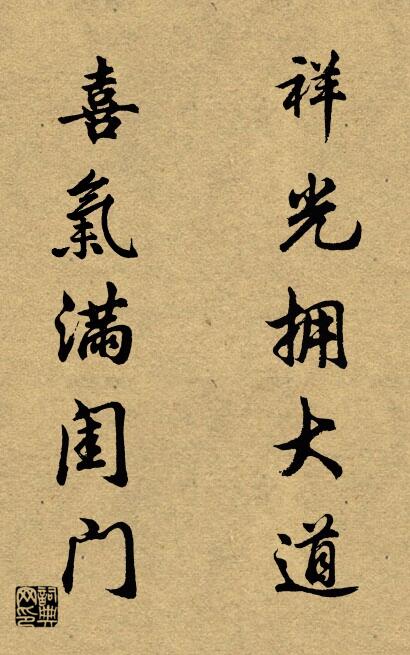 祥光拥大道
喜氣满闺门
詞典网印